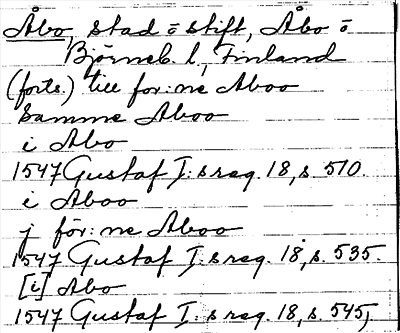 Åbo, stad o stift, Åbo o
Björneb. l, Finland
(forts.) till for:ne Aboo
Samme Aboo
i Abo
1547 Gustaf I:s reg. 18, s. 510.
i Aboo
j för:ne Aboo
1547 Gustaf I:s reg. 18, s. 535.
[i] Abo
1547 Gustaf I:s reg. 18, s. 545,